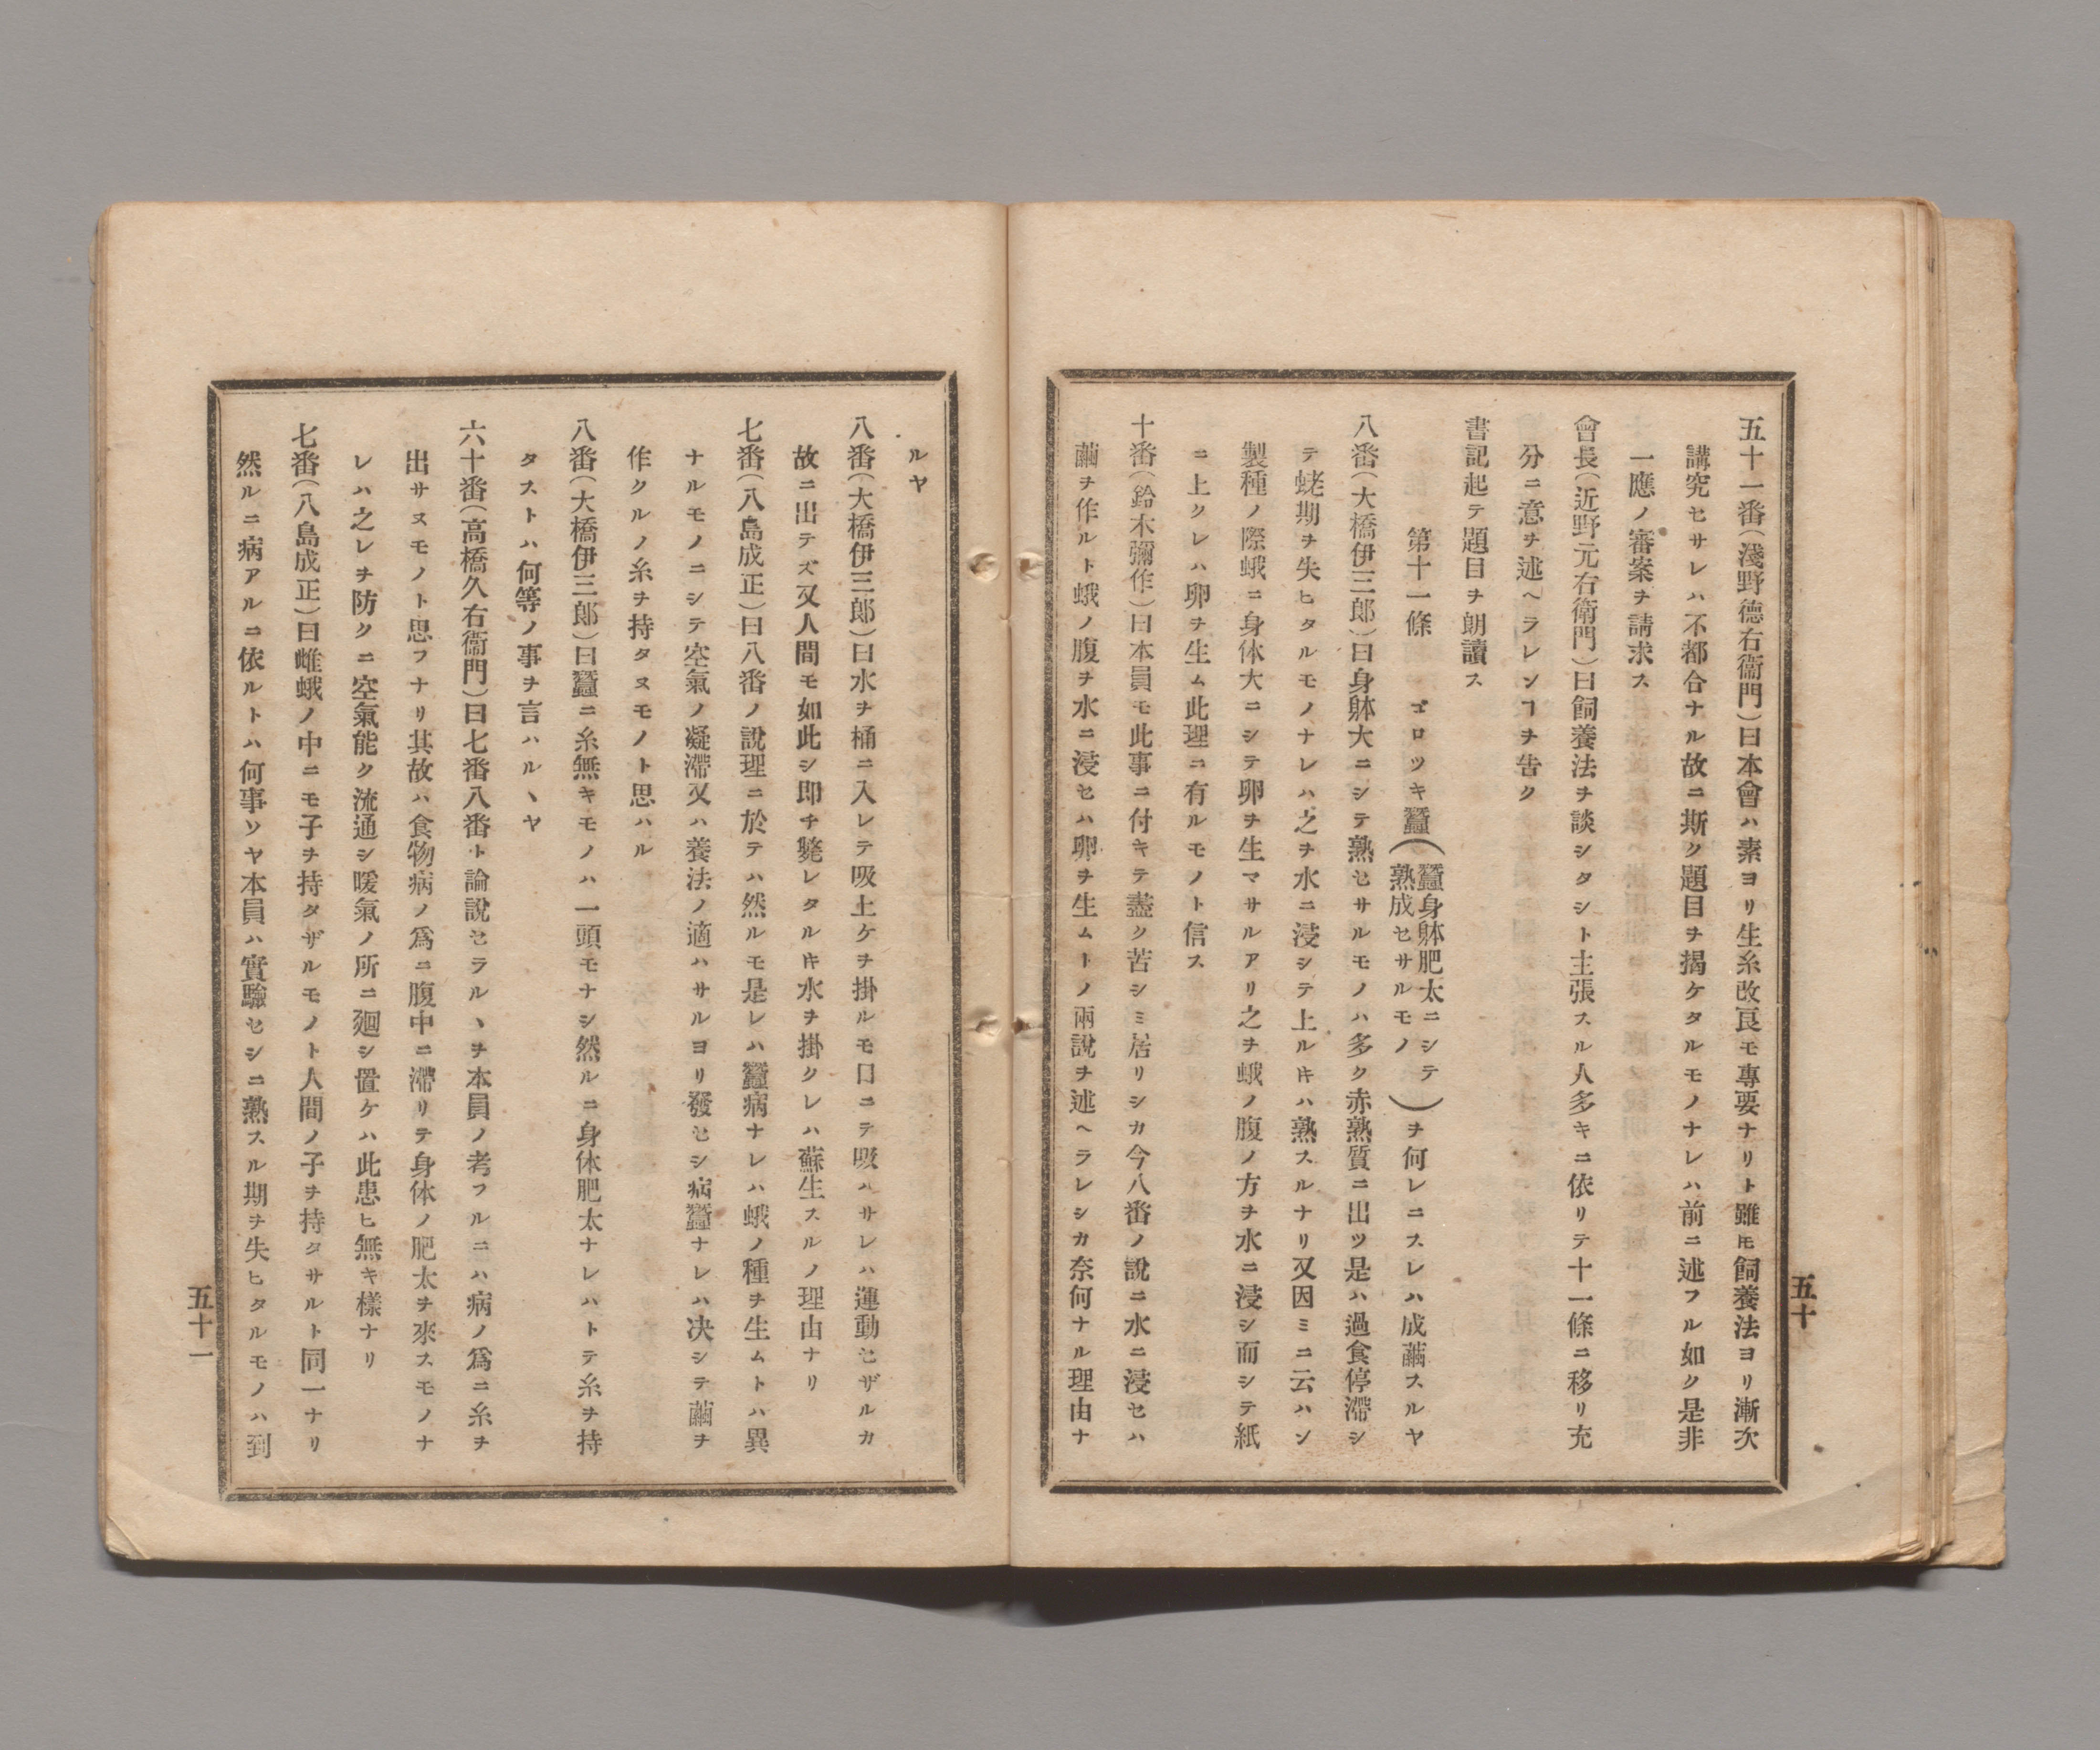 五十一番(淺野德右衞門)曰本會ハ素ヨリ生糸改良モ專要ナリト雖𪜈飼養法ヨリ漸次
講究セサレハ不都合ナル故ニ斯ク題目ヲ揭ケタルモノナレハ前ニ述フル如ク是非
一應ノ審案ヲ請求ス
會長(近野元右衞門)曰飼養法ヲ談シタシト主張スル人多キニ依リテ十一條ニ移リ充
分ニ意ヲ述ヘラレンヿヲ告ク
書記起テ題目ヲ朗讀ス
第十一條 ゴロツキ蠶(蠶身躰肥太ニシテ熟成セサルモノ)ヲ何レニスレハ成繭スルヤ
八番(大橋伊三郎)曰身躰大ニシテ熟セサルモノハ多ク赤熟質ニ出ツ是ハ過食停滯シ
テ蛯期ヲ失ヒタルモノナレハ之ヲ水ニ浸シテ上ルキハ熟スルナリ又因ミニ云ハン
製種ノ際蛾ニ身体大ニシテ卵ヲ生マサルアリ之ヲ蛾ノ腹ノ方ヲ水ニ浸シ而シテ紙
ニ上クレハ卵ヲ生ム此理ニ有ルモノト信ス
十番(鈴木彌作)曰本員モ此事ニ付キテ盡ク苦シミ居リシカ今八番ノ說ニ水ニ浸セハ
繭ヲ作ルト蛾ノ腹ヲ水ニ浸セハ卵ヲ生ムトノ兩說ヲ述ヘラレシカ奈何ナル理由ナ
五十
ルヤ
八番(大橋伊三郎)曰水ヲ桶ニ入レテ吸上ケヲ掛ルモ口ニテ吸ハサレハ運動セザルカ
故ニ出テズ又人間モ如此シ即チ斃レタルキ水ヲ掛クレハ蘇生スルノ理由ナリ
七番(八島成正)曰八番ノ說理ニ於テハ然ルモ是レハ蠶病ナレハ蛾ノ種ヲ生ムトハ異
ナルモノニシテ空氣ノ凝滯又ハ養法ノ適ハサルヨリ發セシ病蠶ナレハ决シテ繭ヲ
作クルノ糸ヲ持タヌモノト思ハル
八番(大橋伊三郎)曰蠶ニ糸無キモノハ一頭モナシ然ルニ身体肥太ナレハトテ糸ヲ持
タストハ何等ノ事ヲ言ハルヽヤ
六十番(高橋久右衞門)曰七番八番ト論說セラルヽヲ本員ノ考フルニハ病ノ爲ニ糸ヲ
出サヌモノト思フナリ其故ハ食物病ノ爲ニ腹中ニ滯リテ身体ノ肥太ヲ來スモノナ
レハ之レヲ防クニ空氣能ク流通シ暖氣ノ所ニ廻シ置ケハ此患ヒ無キ樣ナリ
七番(八島成正)曰雌蛾ノ中ニモ子ヲ持タザルモノト人間ノ子ヲ持タサルト同一ナリ
然ルニ病アルニ依ルトハ何事ソヤ本員ハ實驗セシニ熟スル期ヲ失ヒタルモノハ到
五十一